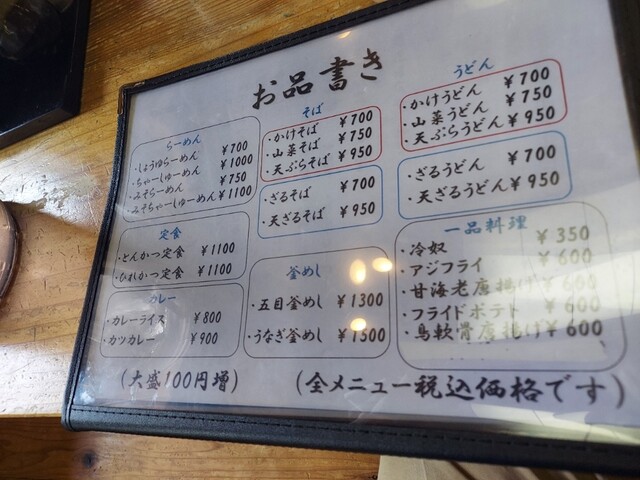 お品書き
らーめん
・しょうゆらーめん ￥700
・ちゃーしゅーめん ￥1000
・みそらーめん ￥750
・みそちゃーしゅーめん ￥1100
そば
・かけそば ￥700
・山菜そば ￥750
・天ぷらそば ￥950
・ざるそば ￥700
・天ざるそば ￥950
うどん
・かけうどん ￥700
・山菜うどん ￥750
・天ぷらうどん ￥950
・ざるうどん ￥700
・天ざるうどん ￥950
定食
・とんかつ定食 ￥1100
・ひれかつ定食 ￥1100
カレー
・カレーライス ￥800
・カツカレー ￥900
釜めし
・五目釜めし ￥1300
・うなぎ釜めし ￥1500
一品料理
・冷奴 ￥350
・アジフライ ￥600
・甘海老唐揚げ ￥600
・フライドポテト ￥600
・鳥軟骨唐揚げ ￥600
(大盛100円増)
(全メニュー税込価格です)